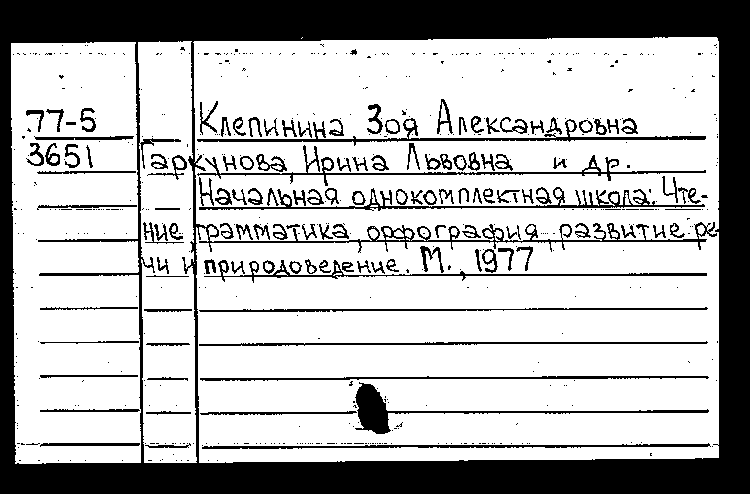 77-5 Клепинина, Зоя Александровна
3651 Гаркунова, Ирина Львовна и др.
Начальная однокомплектная школа: Чте-
ние, грамматика, орфография, развитие ре-
чи и природоведение. М., 1977